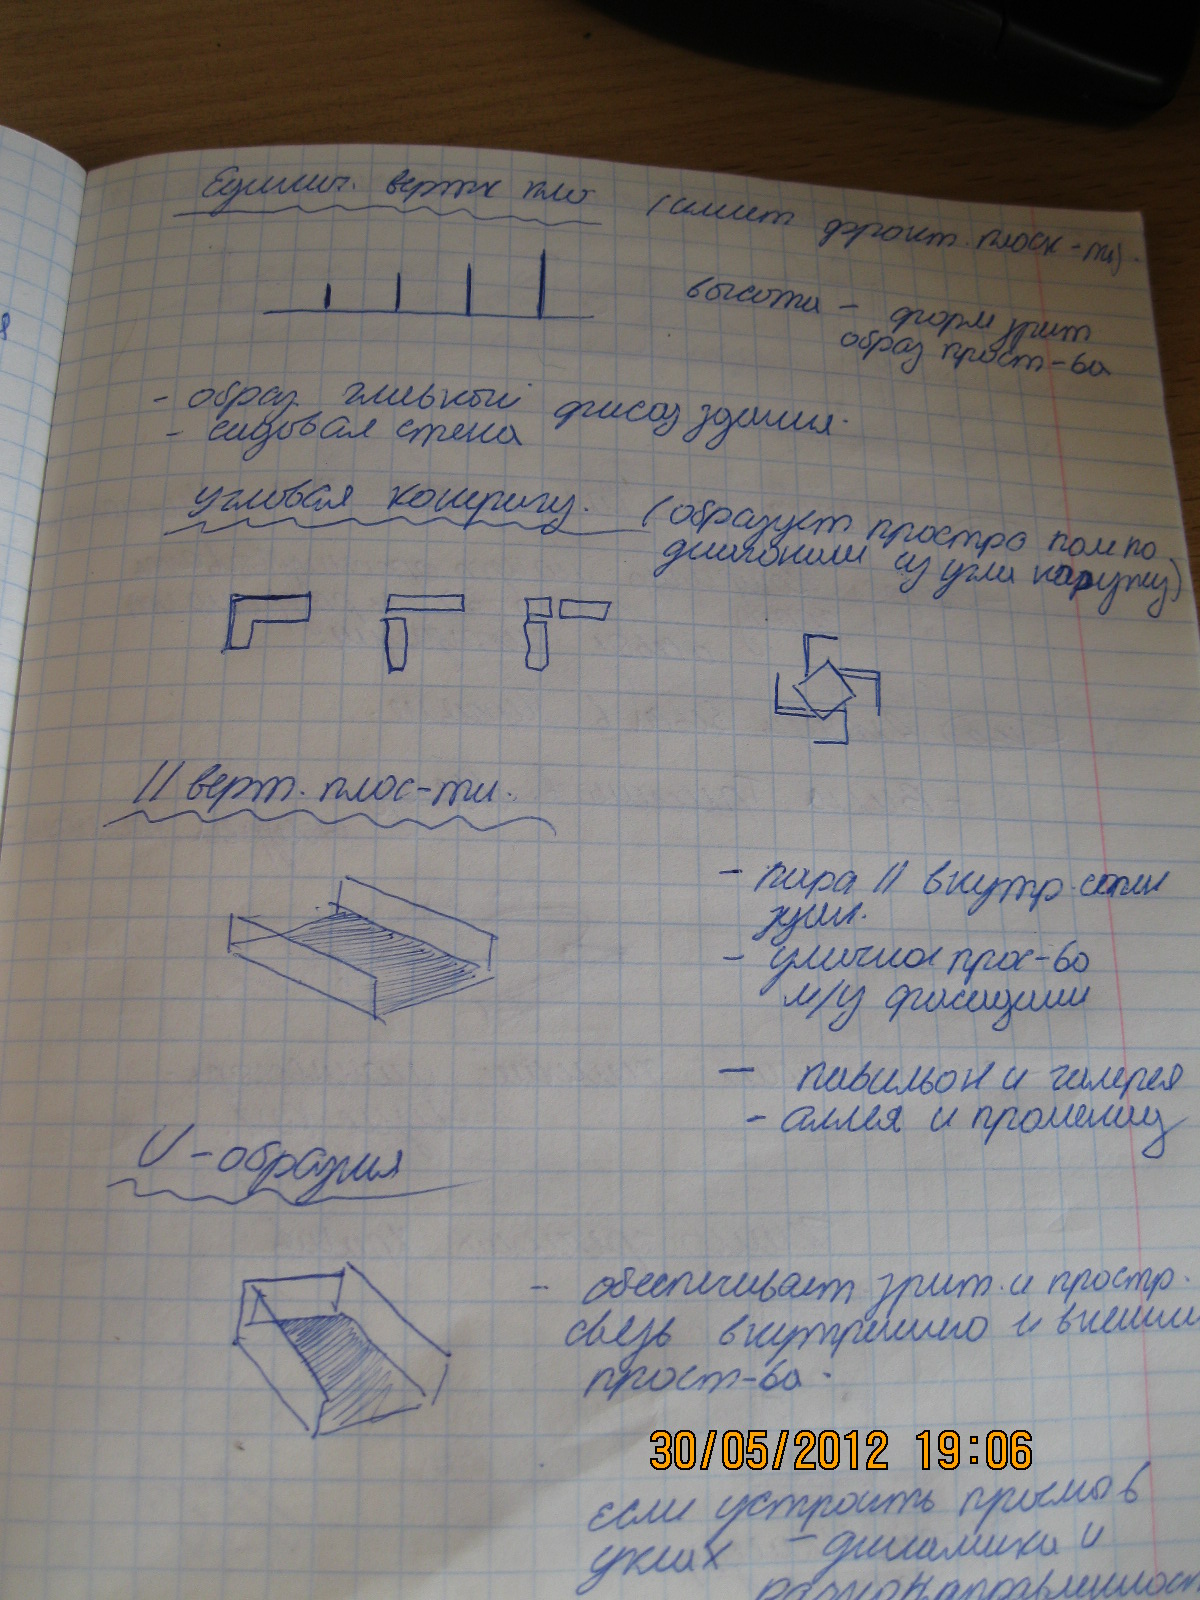 Единич. вертик пло (имеет фронт. плоск-ти).
высота – форм зрит
образ прост-ва
- образ главный фасад здания.
- садовая стена
угловая конфигу. (образует простр полю по
диагонали из угла наружу)
// верт. плос-ти.
- пара // внутр. стен
здан.
- уличное прос-во
м/у фасадами
- павильон и галерея
- аллея и променад
U-образная
- обеспечивает зрит. и простр.
связь внутреннего и внешн
прост-ва.
30/05/2012 19:06
если устроить проемы в
углах – динамика и
разнонаправленност